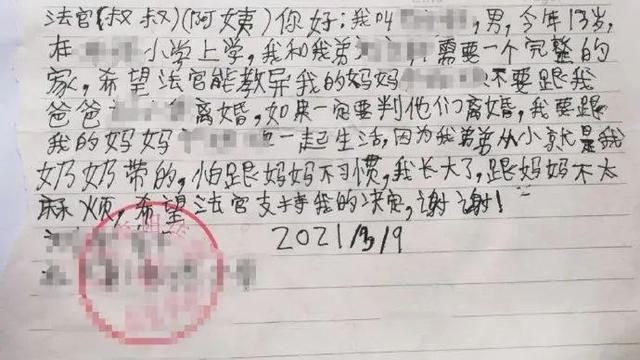 法官(叔叔)(阿姨)你好:我叫 ,男,今年13岁,
在 小学上学,我和我弟 需要一个完整的
家,希望法官能教导我的妈妈 不要跟我
爸爸 离婚,如果一定要判他们离婚,我要跟
我的妈妈 一起生活,因为我弟弟从小就是我
奶奶带的,怕跟妈妈不习惯,我长大了,跟妈妈不太
麻烦,希望法官支持我的决定,谢谢!
2021/3/9